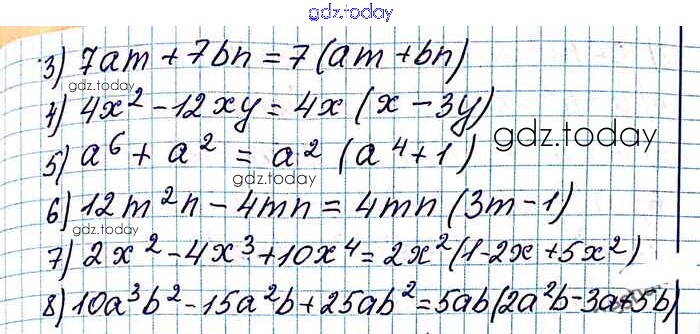 gdz.today
3) 7am + 7bn = 7(am + bn)
gdz.today
4) 4x² - 12xy = 4x (x - 3y)
gdz.today
5) a⁶ + a² = a² (a⁴ + 1)
gdz.today
6) 12m²n - 4mn = 4mn (3m - 1)
7) 2x² - 4x³ + 10x⁴ = 2x² (1 - 2x + 5x²)
8) 10a³b² - 15a²b + 25ab² = 5ab(2a²b - 3a + 5b)